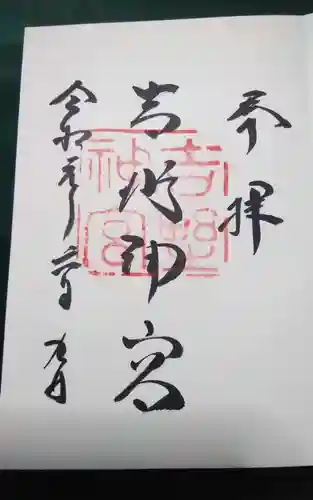 奉拝
吉野神宮
吉野神宮
令和元年
九日